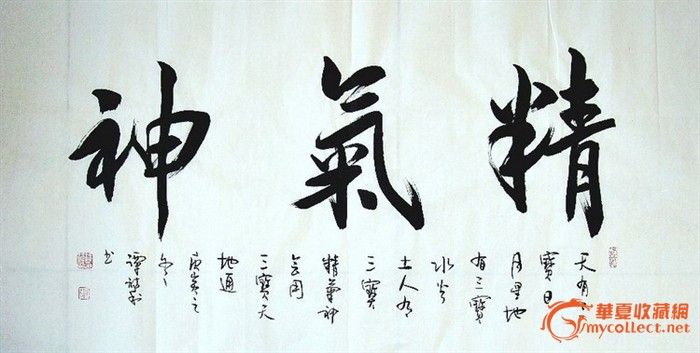 精氣神
天有三
寶日
月星地
有三寶
水火
土人有
三寶
精氣神
會用
三寶天
地通
庚寅之
冬
譚
书
華夏收藏網
mycollect.net